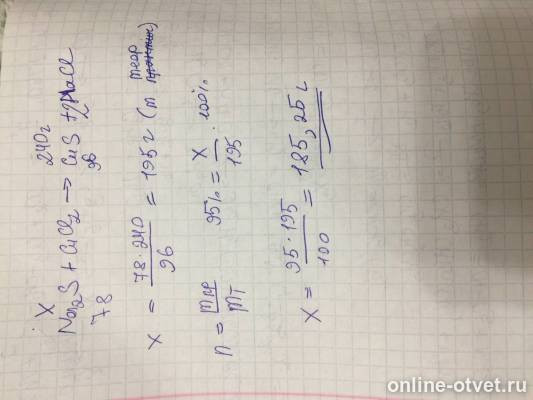 X 240г
Na₂S + CuCl₂ → CuS + 2NaCl
78 96
X = 78·240 / 96 = 195г (m теор)
η = mпр / mт 95% = X / 195 · 100%
X = 95·195 / 100 = 185,25г
online-otvet.ru